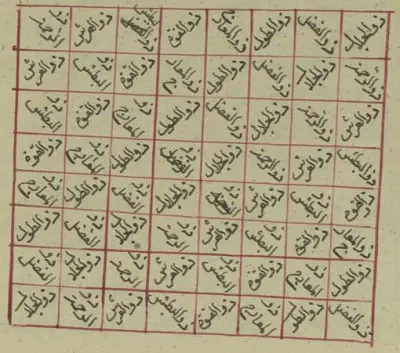 ذو الجلال ذو الفضل ذو الطول ذو المعارج ذو القوة ذو البطش ذو العرش ذو الرحمة
ذو الرحمة ذو الجلال ذو الفضل ذو الطول ذو المعارج ذو القوة ذو البطش ذو العرش
ذو العرش ذو الرحمة ذو الجلال ذو الفضل ذو الطول ذو المعارج ذو القوة ذو البطش
ذو البطش ذو العرش ذو الرحمة ذو الجلال ذو الفضل ذو الطول ذو المعارج ذو القوة
ذو القوة ذو البطش ذو العرش ذو ذو الجلال ذو الفضل ذو الطول ذو المعارج
ذو المعارج ذو القوة ذو البطش ذو العرش ذو الرحمة ذو الجلال ذو الفضل ذو الطول
ذو الطول ذو المعارج ذو القوة ذو البطش ذو العرش ذو الرحمة ذو الجلال ذو الفضل
ذو الفضل ذو الطول ذو المعارج ذو القوة ذو البطش ذو العرش ذو الرحمة ذو الجلال